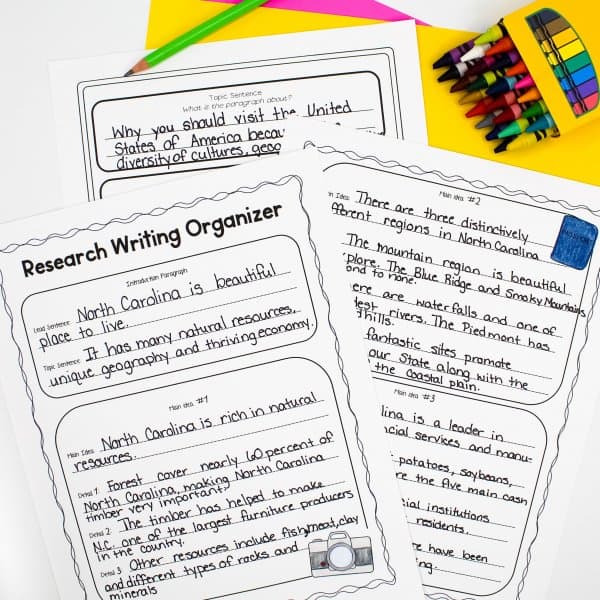 Topic Sentence
What is the paragraph about?
Why you should visit the United
States of America becau
diversity of cultures, geog
Research Writing Organizer
Introduction Paragraph
Lead Sentence: North Carolina is beautiful
place to live.
Topic Sentence: It has many natural resources,
unique geography and thriving economy.
Main idea #1
Main Idea: North Carolina is rich in natural
resources.
Detail 1: Forest cover nearly 60 percent of
North Carolina, making North Carolina
timber very important.
Detail 2: The timber has helped to make
N.C. one of the largest furniture producers
in the country.
Detail 3: Other resources include fish, meat, clay
and different types of rocks and
minerals
Main idea #2
in Idea: There are three distinctively
fferent regions in North Carolina
The mountain region is beautiful
plore. The Blue Ridge and Smoky Mountains
ond to none.
ere are waterfalls and one of
dest rivers. The Piedmont has
thills.
fantastic sites promote
our State along with the
the Coastal plain.
Main idea #3
lina is a leader in
ncial services and manu-
potatoes, soybeans,
re the five main cash
cial institutions
residents.
re have been
ing.